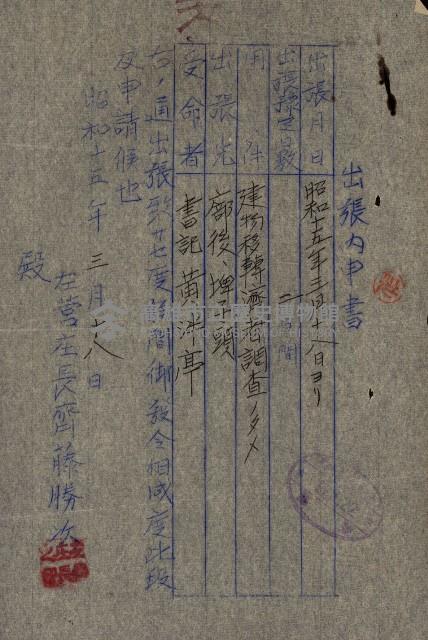 出張內申書
出張月日 昭和十五年三月十八日ヨリ
出張豫定日數 二日間
用件 建物移轉濟否調査ノタメ
出張先 廍後、埤子頭
受命者 書記 黃洪亭
右ノ通出張致サセ度候間御發令相成度此段
及申請候也
昭和十五年三月十八日
左營庄長齊藤勝次
殿
高雄市立歷史博物館